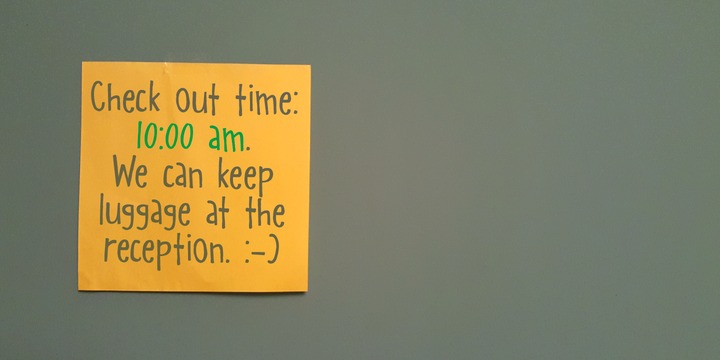 Check out time:
10:00 am.
We can keep
luggage at the
reception. :-)